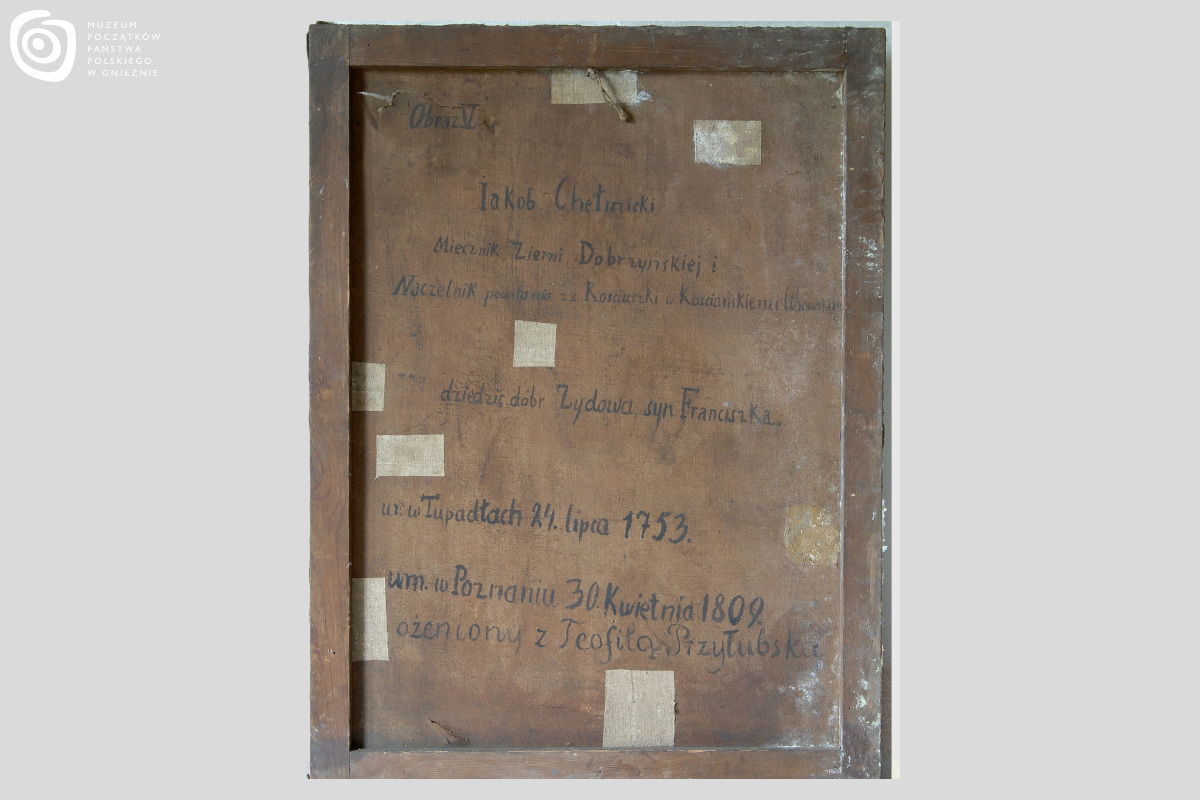 MUZEUM
POCZĄTKÓW
PAŃSTWA
POLSKIEGO
W GNIEŹNIE
Obraz V.
Iakob Chełmicki
Miecznik Ziemi Dobrzyńskiej i
Naczelnik powstania za Kościuszki w Kościańskiem i
dziedzic dóbr Zydowa, syn Franciszka.
ur. w Tupadłach 24. lipca 1753.
um. w Poznaniu 30. Kwietnia 1809.
ożeniony z Teofilą Przyłubską